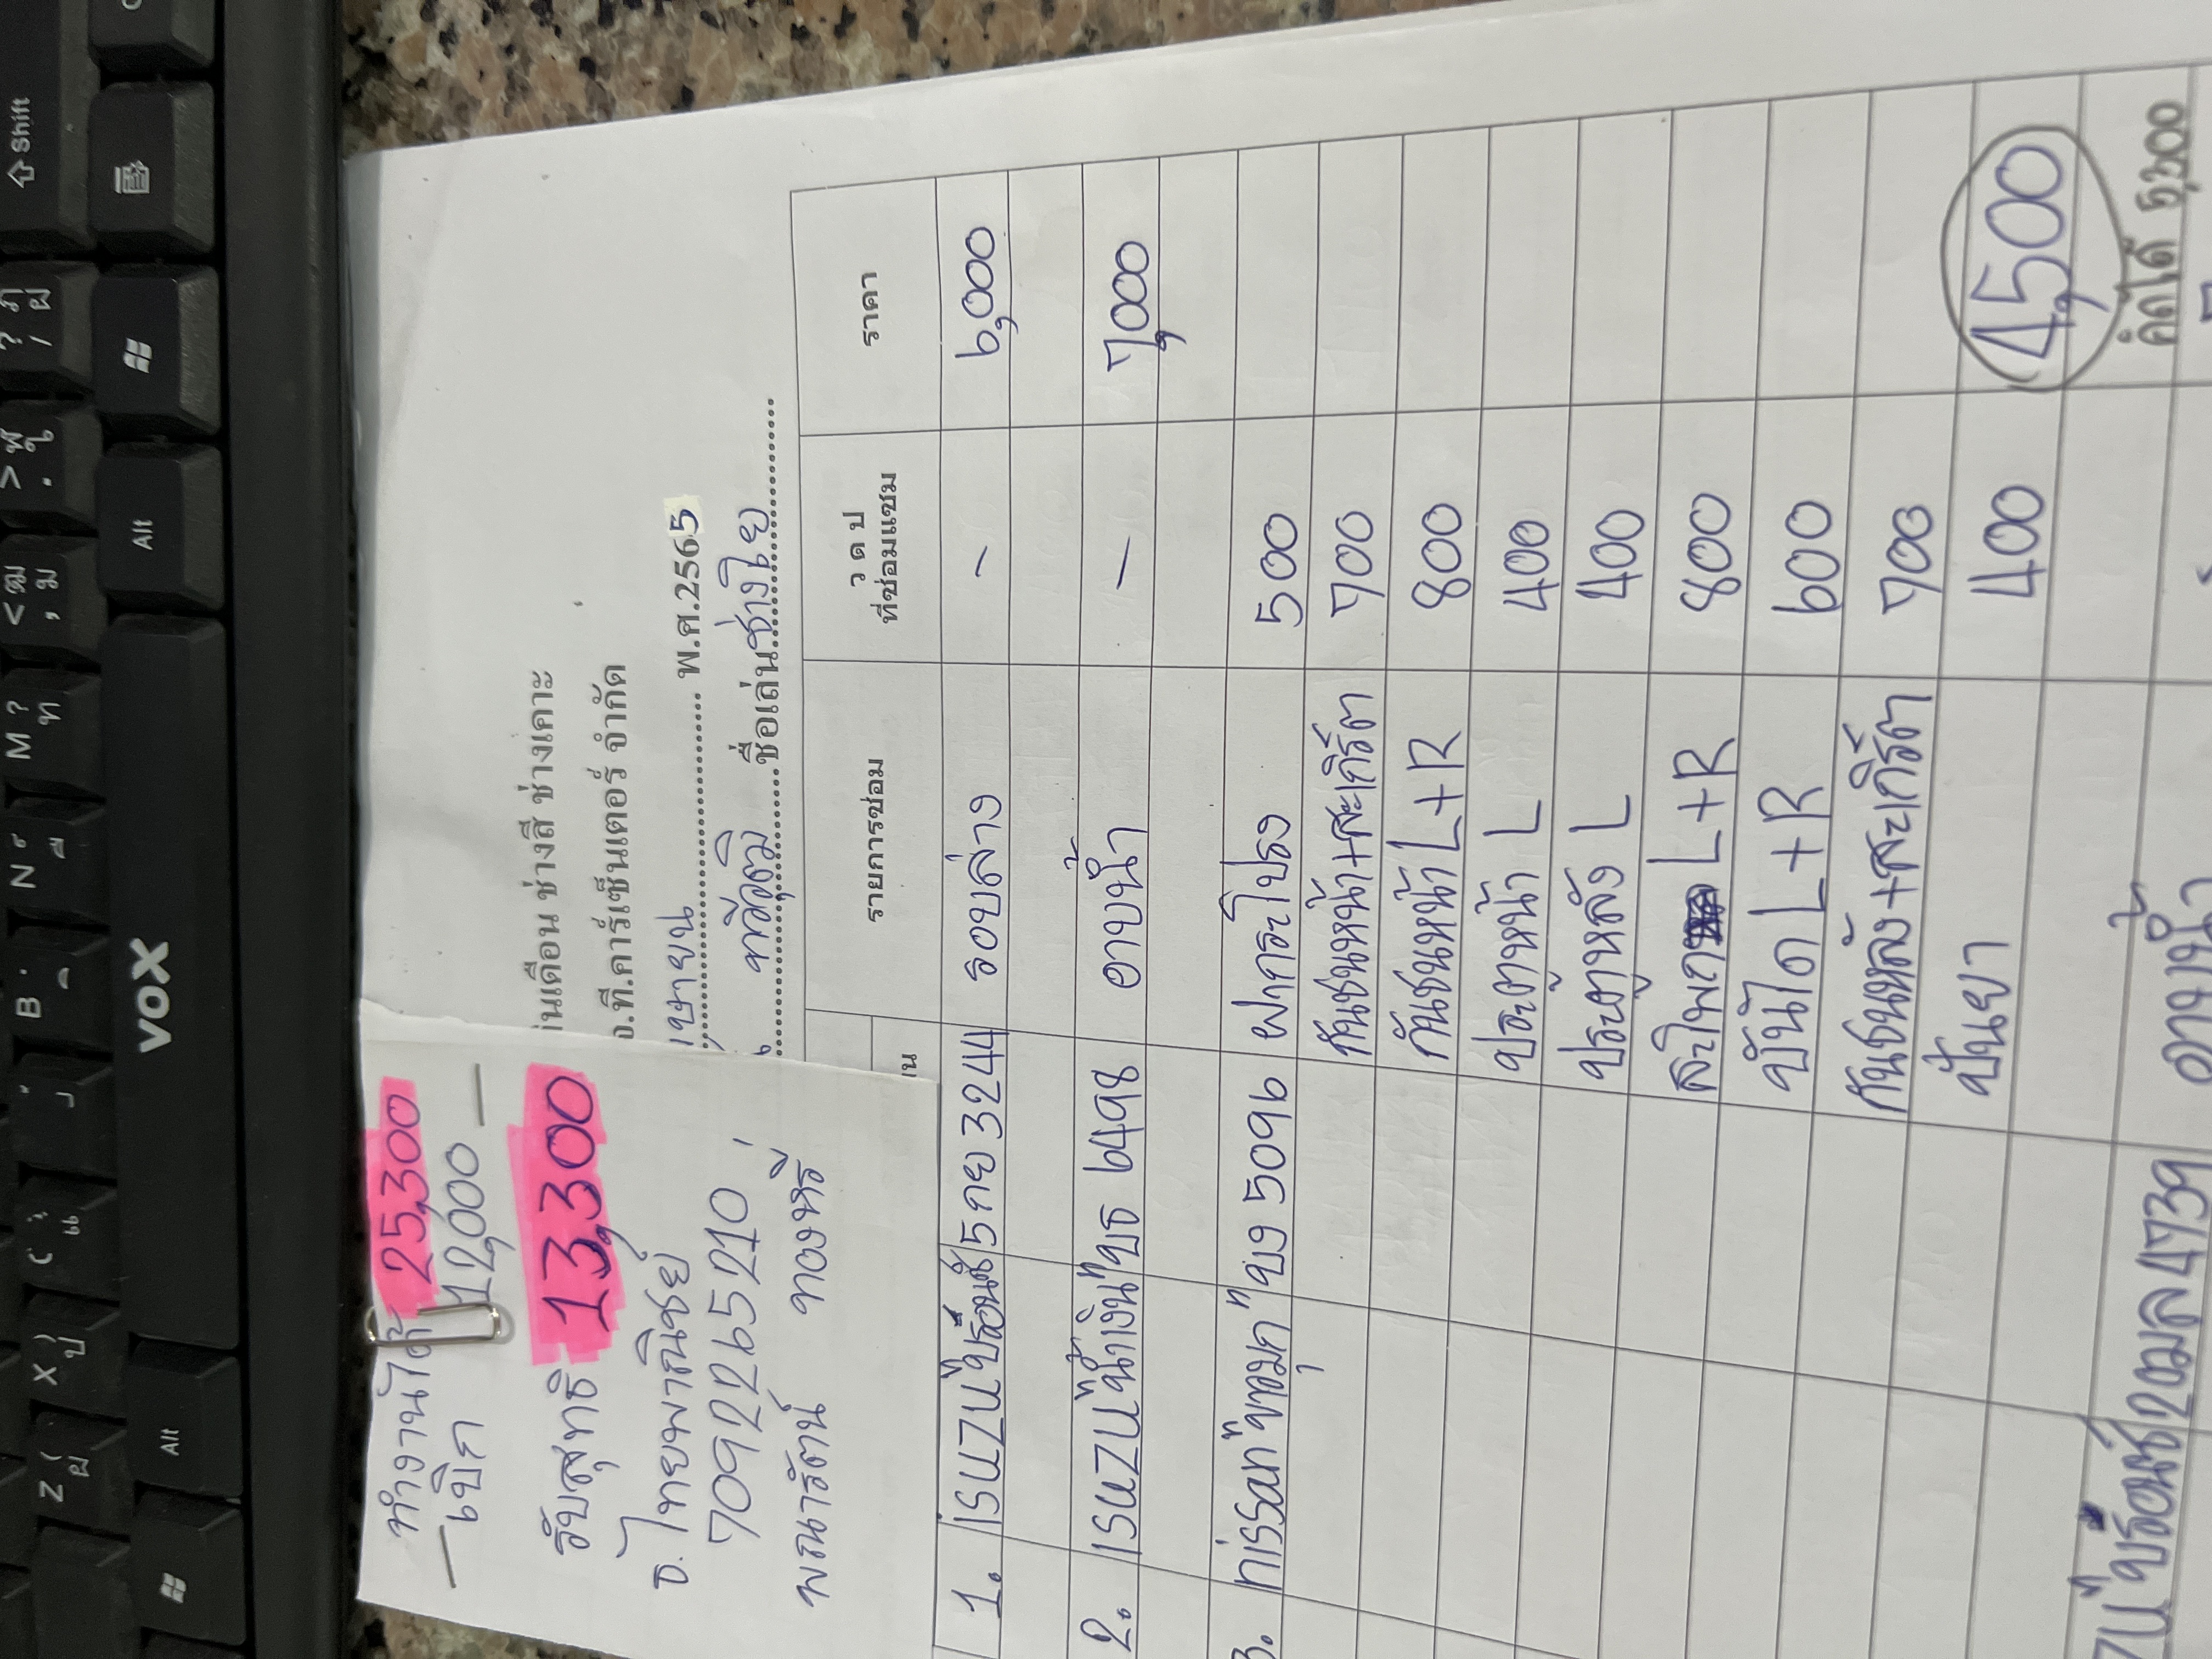 ทำงานได้ 25,300
— เบิก 12,000 —
รับสุทธิ 13,300
ธ. ไทยพาณิชย์
7092265210
พรณารัตน์ ทองหรี่
นเดือน ช่างสี ช่างเคาะ
.ที.คาร์เซ็นเตอร์ จำกัด
เมษายน พ.ศ.2565
ทวีวุฒิ ชื่อเล่น ช่างไย
รายการซ่อม ว ด ป ที่ซ่อมแซม ราคา
1. ISUZU "บรอนซ์" 5กย 3244 รอบล่าง - 6,000
2. ISUZU "น้ำเงิน" บธ 6498 อาบน้ำ - 7,000
3. nissan "ขาวมุก" ขง 5096 ฝากระโปรง 500
กันชนหน้า+สะเกิ๊ต 700
กันชนหน้า L+R 800
ประตูหน้า L 400
ประตูหลัง L 400
สะโพก L+R 800
บันได L+R 600
กันชนหลัง+สะเกิ๊ต 700
ปั่นยา 400 4,500
คิดได้ 5,300
ZU "บรอนซ์" 2ฒล 4739 อาบน้ำ
Shift
Alt
VOX
Alt
M ? ท
N
B
C
X ) ป
Z ( ผ